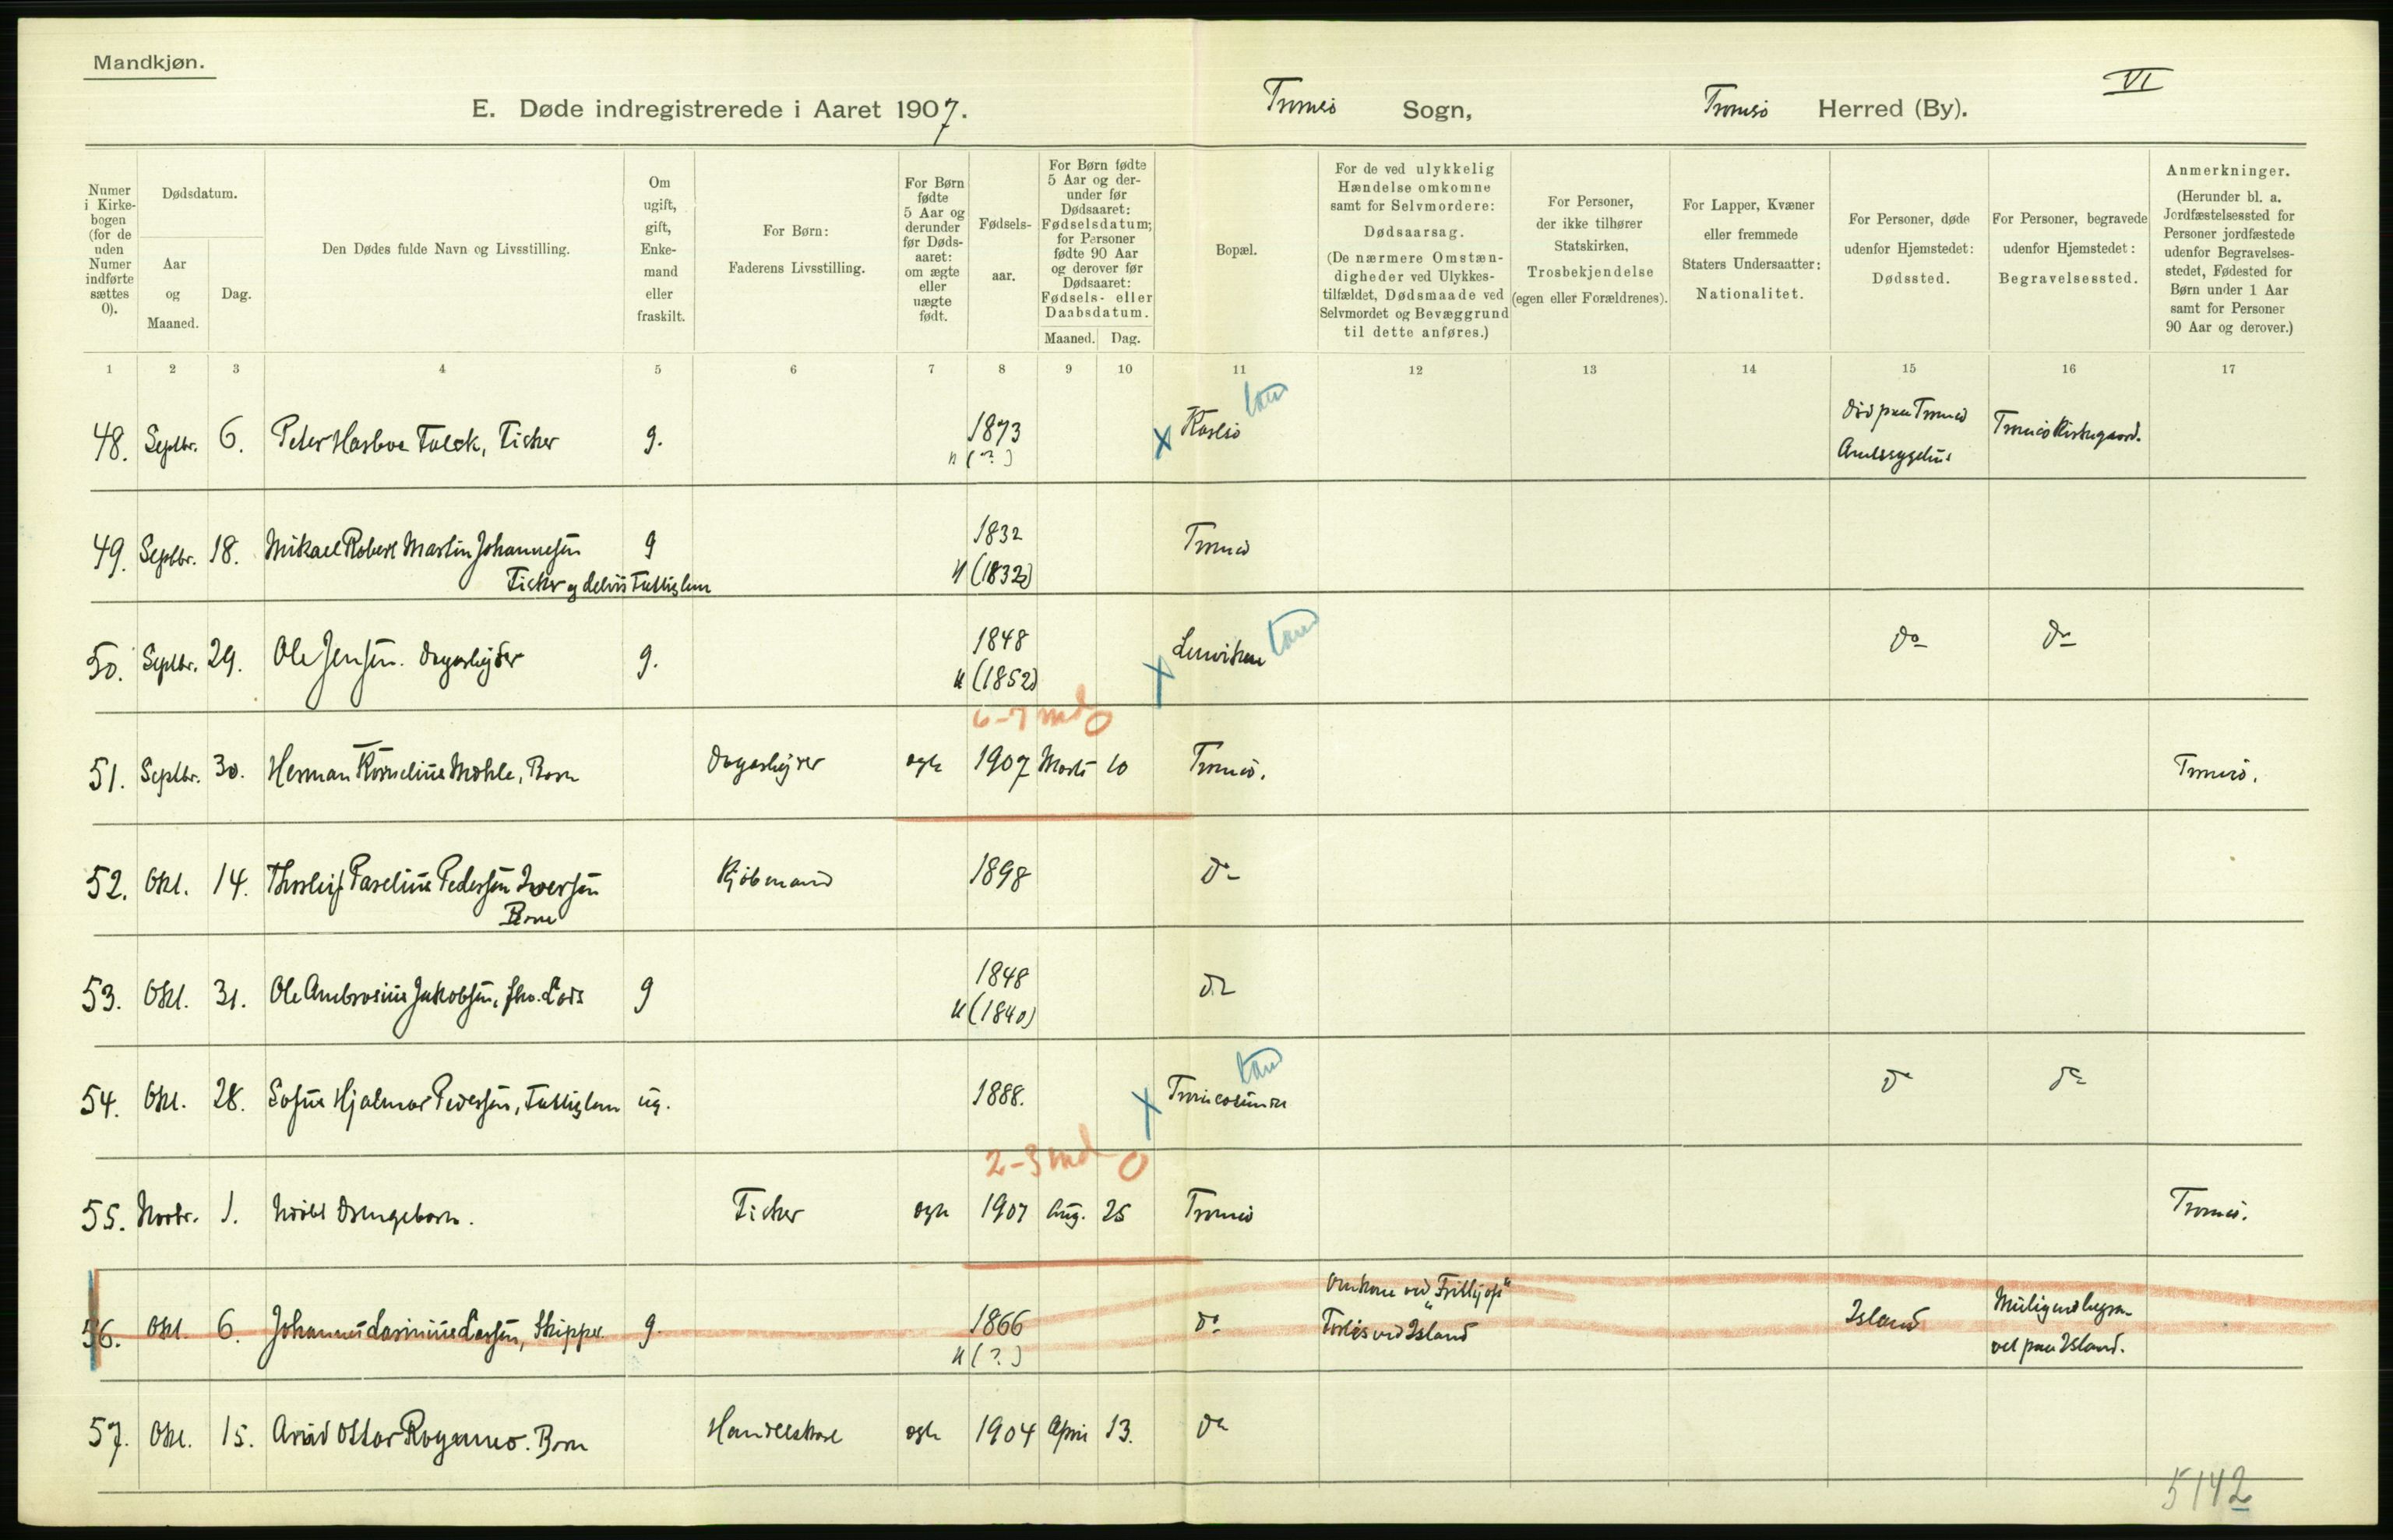 Mandkjøn.
VI
E. Døde indregistrerede i Aaret 1907. Tromsö Sogn, Tromsö Herred (By).
Numer i Kirkebogen (for de uden Numer indførte sættes 0).
Dødsdatum.
Aar og Maaned.
Dag.
Den Dødes fulde Navn og Livsstilling.
Om ugift, gift, Enkemand eller fraskilt.
For Børn: Faderens Livsstilling.
For Børn fødte 5 Aar og derunder før Dødsaaret: om ægte eller uægte født.
Fødselsaar.
For Børn fødte 5 Aar og derunder før Dødsaaret: Fødselsdatum; for Personer fødte 90 Aar og derover før Dødsaaret: Fødsels- eller Daabsdatum.
Maaned. Dag.
Bopæl.
For de ved ulykkelig Hændelse omkomne samt for Selvmordere: Dødsaarsag. (De nærmere Omstændigheder ved Ulykkestilfældet, Dødsmaade ved Selvmordet og Bevæggrund til dette anføres.)
For Personer, der ikke tilhører Statskirken, Trosbekjendelse (egen eller Forældrenes).
For Lapper, Kvæner eller fremmede Staters Undersaatter: Nationalitet.
For Personer, døde udenfor Hjemstedet: Dødssted.
For Personer, begravede udenfor Hjemstedet: Begravelsessted.
Anmerkninger. (Herunder bl. a. Jordfæstelsessted for Personer jordfæstede udenfor Begravelsesstedet, Fødested for Børn under 1 Aar samt for Personer 90 Aar og derover.)
1 2 3 4 5 6 7 8 9 10 11 12 13 14 15 16 17
48. Septbr. 6. Peter Falck, Fisker g. 1873 Karlsö Död paa Tromsö Tromsö Kirkegaard.
(?) Amtssygehus
49. Septbr. 18. Mikael Robert Martin Johannesen g 1832 Tromsö
Fisker og Fattiglem (1832)
50. Septbr. 29. Ole Jensen. Dagarbejder g. 1848 Lenviken land do do
(1852)
6-7 md 0
51. Septbr. 30. Herman Kornelius Mohle, Barn Dagarbejder ægte 1907 Marts 10 Tromsö. Tromsö.
52. Okt. 14. Thorleif Paselius Pedersen Iversen Kjöbmand 1898 do
Barn
53. Okt. 31. Ole Ambrosius Jakobsen, Lods g 1848 do
(1840)
54. Okt. 28. Sofus Hjalmar Pedersen, Fattiglem ug. 1888. Tromsösundet land do do
2-3 md 0
55. Novbr. 1. Udöbt Drengebarn. Fisker ægte 1907 Aug. 25 Tromsö Tromsö.
56. Okt. 6. Johannes Lasinius Larsen, Skipper g. 1866 do Omkom ved "Frithjofs" Island Muligens begra-
(?) Forlis ved Island vet paa Island.
57. Okt. 15. Arvid Ottar Rognmo. Barn Handelskarl ægte 1904 April 13. do
5142